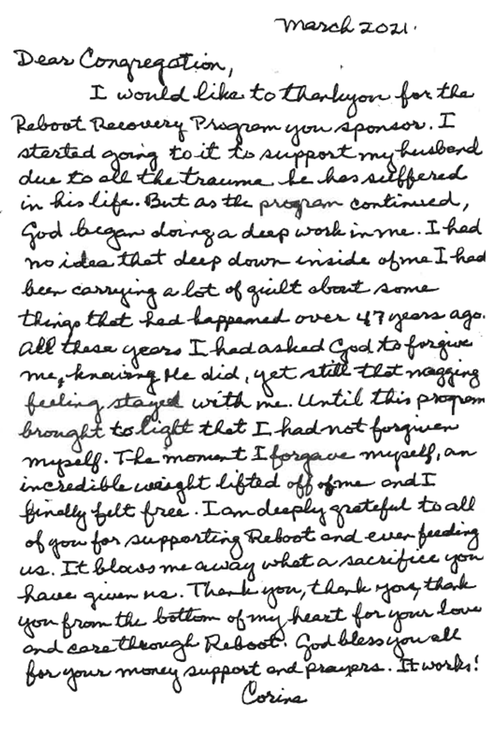 March 2021.
Dear Congregation,
I would like to thankyou for the
Reboot Recovery Program you sponsor. I
started going to it to support my husband
due to all the trauma he has suffered
in his life. But as the program continued,
God began doing a deep work in me. I had
no idea that deep down inside of me I had
been carrying a lot of guilt about some
things that had happened over 47 years ago.
All these years I had asked God to forgive
me, knowing He did, yet still that nagging
feeling stayed with me. Until this program
brought to light that I had not forgiven
myself. The moment I forgave myself, an
incredible weight lifted off of me and I
finally felt free. I am deeply grateful to all
of you for supporting Reboot and even feeding
us. It blows me away what a sacrifice you
have given us. Thank you, thank you, thank
you from the bottom of my heart for your love
and care through Reboot. God bless you all
for your money support and prayers. It works!
Corine